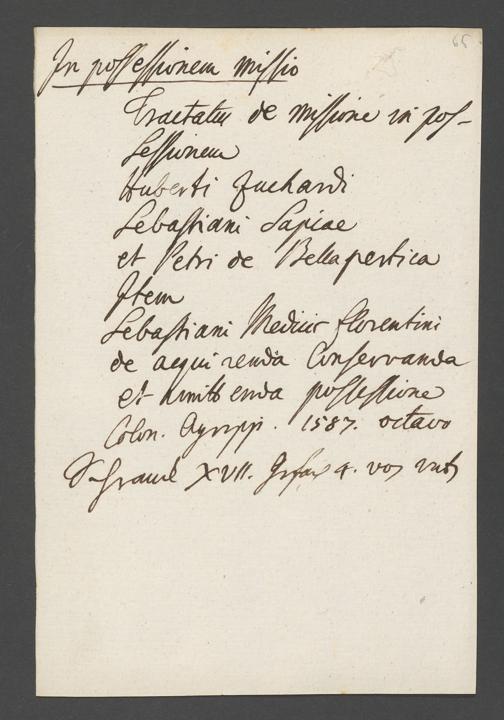 65
In possessionem missio
Tractatus de missione in pos-
sessionem
Huberti Zuchardi
Sebastiani Sapiae
et Petri de Bellapertica
Item
Sebastiani Medicis florentini
de acquirenda Conservanda
et amittenda possessione
Colon. Agripp. 1587. octavo
XVII. 4. von